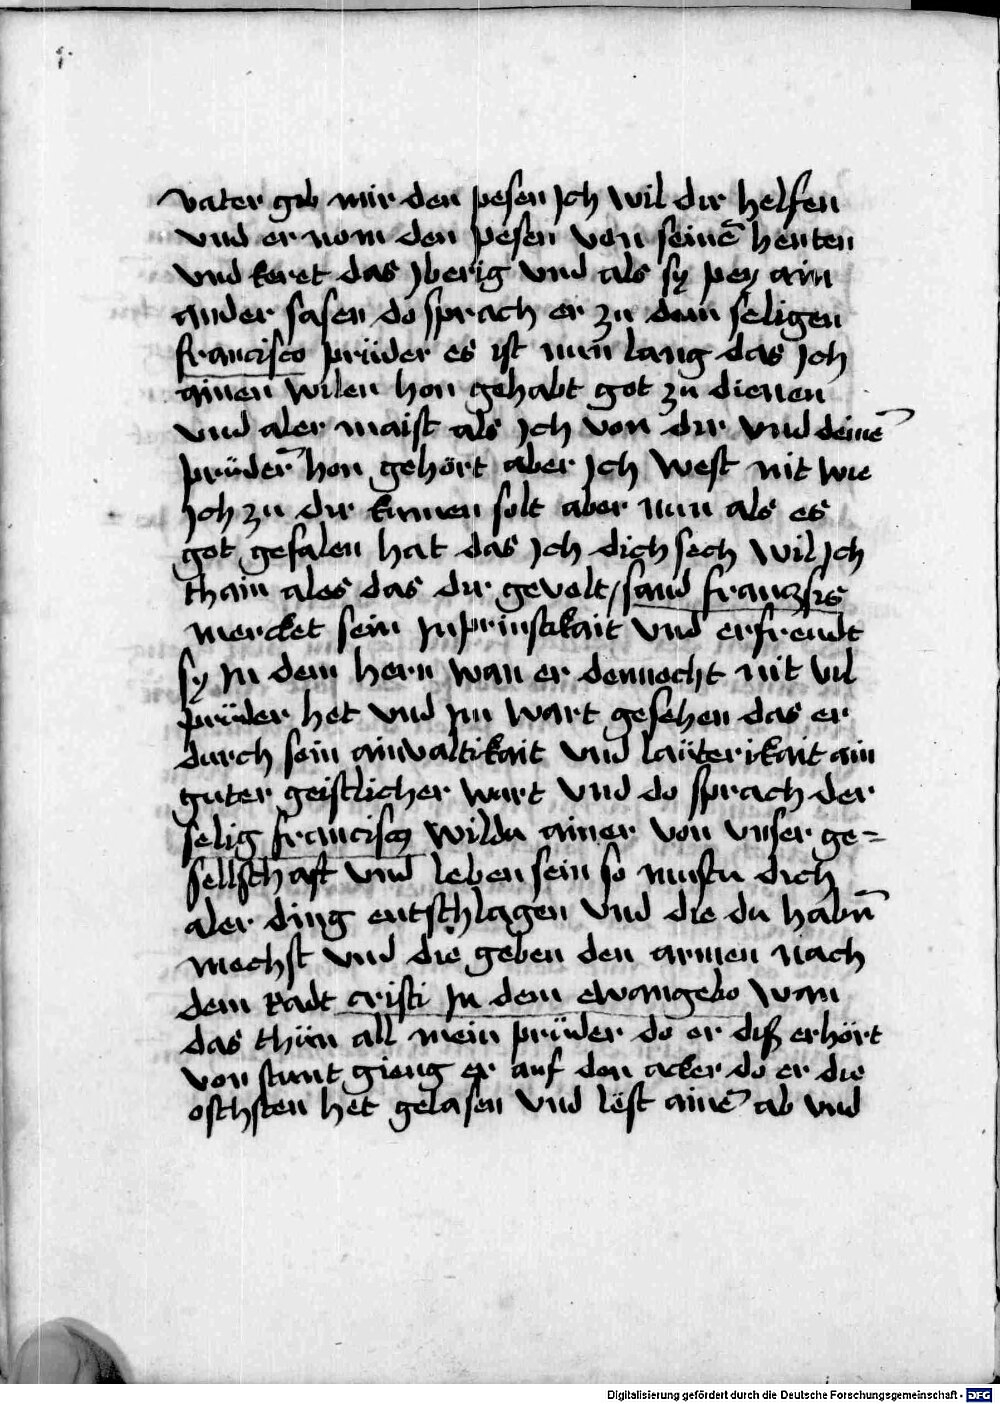 vater gib mir den pesen Jch wil dir helfen
vnd er nom den pesen von seinē henten
vnd keret das Jberig vnd als sy pey ain
ander sasen do sprach er zu dem seligen
francisco prüder es ist nun lang das Jch
ainen wilen hon gehabt got zu dienen
vnd aler maist als Jch von dir vnd deinē
prüder̄ hon gehört aber Jch west nit wie
Jch zu dir kumen solt aber nun als es
got gefalen hat das Jch dich sech wil Jch
thain ales das dir gevelt / sand franczsis
mercket sein Jnprinstikait vnd erfreudt
sy Jn dem hern wan er dennocht nit vil
prüder het vnd Jm wart gesehen das er
durch sein ainvaltikait vnd laüterikait ain
guter geistlicher wurt vnd do sprach der
selig franciscq wildu ainer von vnser ge=
sellschaft vnd leben sein so mustu dich
aler ding entschlagen vnd die du habn̄
mechst vnd die geben den armen nach
dem Radt cristi Jn dem ewangelio wan
das thün all mein prüder do er diß erhört
von stunt gieng er auf den acker do er die
ochsten het gelasen vnd lëst ainē ab vnd
Digitalisierung gefördert durch die Deutsche Forschungsgemeinschaft - DFG